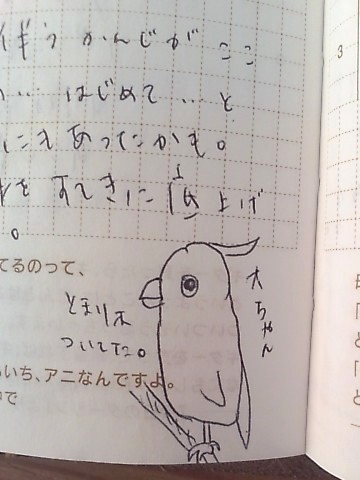 かんじが ここ
… はじめて … と
あったかも。
すてきに 仕上げ
。
てるのって、
とまり木
ついてた。
大ちゃん
いち、アニなんですよ。
で
3